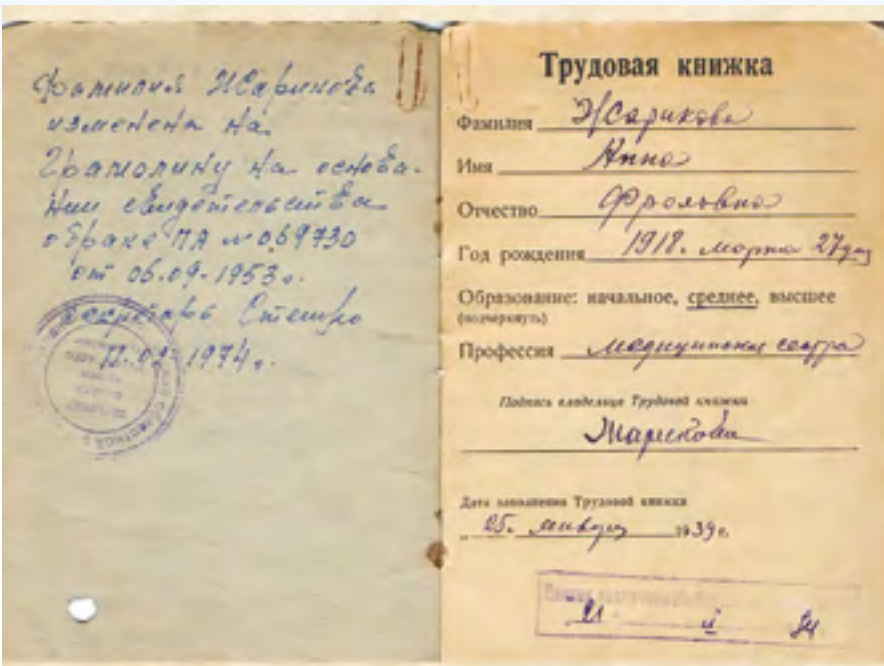 Фамилия Жарикова
изменена на
Грамолину на основа-
нии свидетельства
о браке ПА № 069730
от 06.09.1953г.
секретарь
12.09.1974г.
Трудовая книжка
Фамилия Жарикова
Имя Анна
Отчество Фроловна
Год рождения 1918. марта 27дня
Образование: начальное, среднее, высшее
(подчеркнуть)
Профессия медицинская сестра
Подпись владельца Трудовой книжки
Жарикова
Дата заполнения Трудовой книжки
25. января 1939г.
21 II